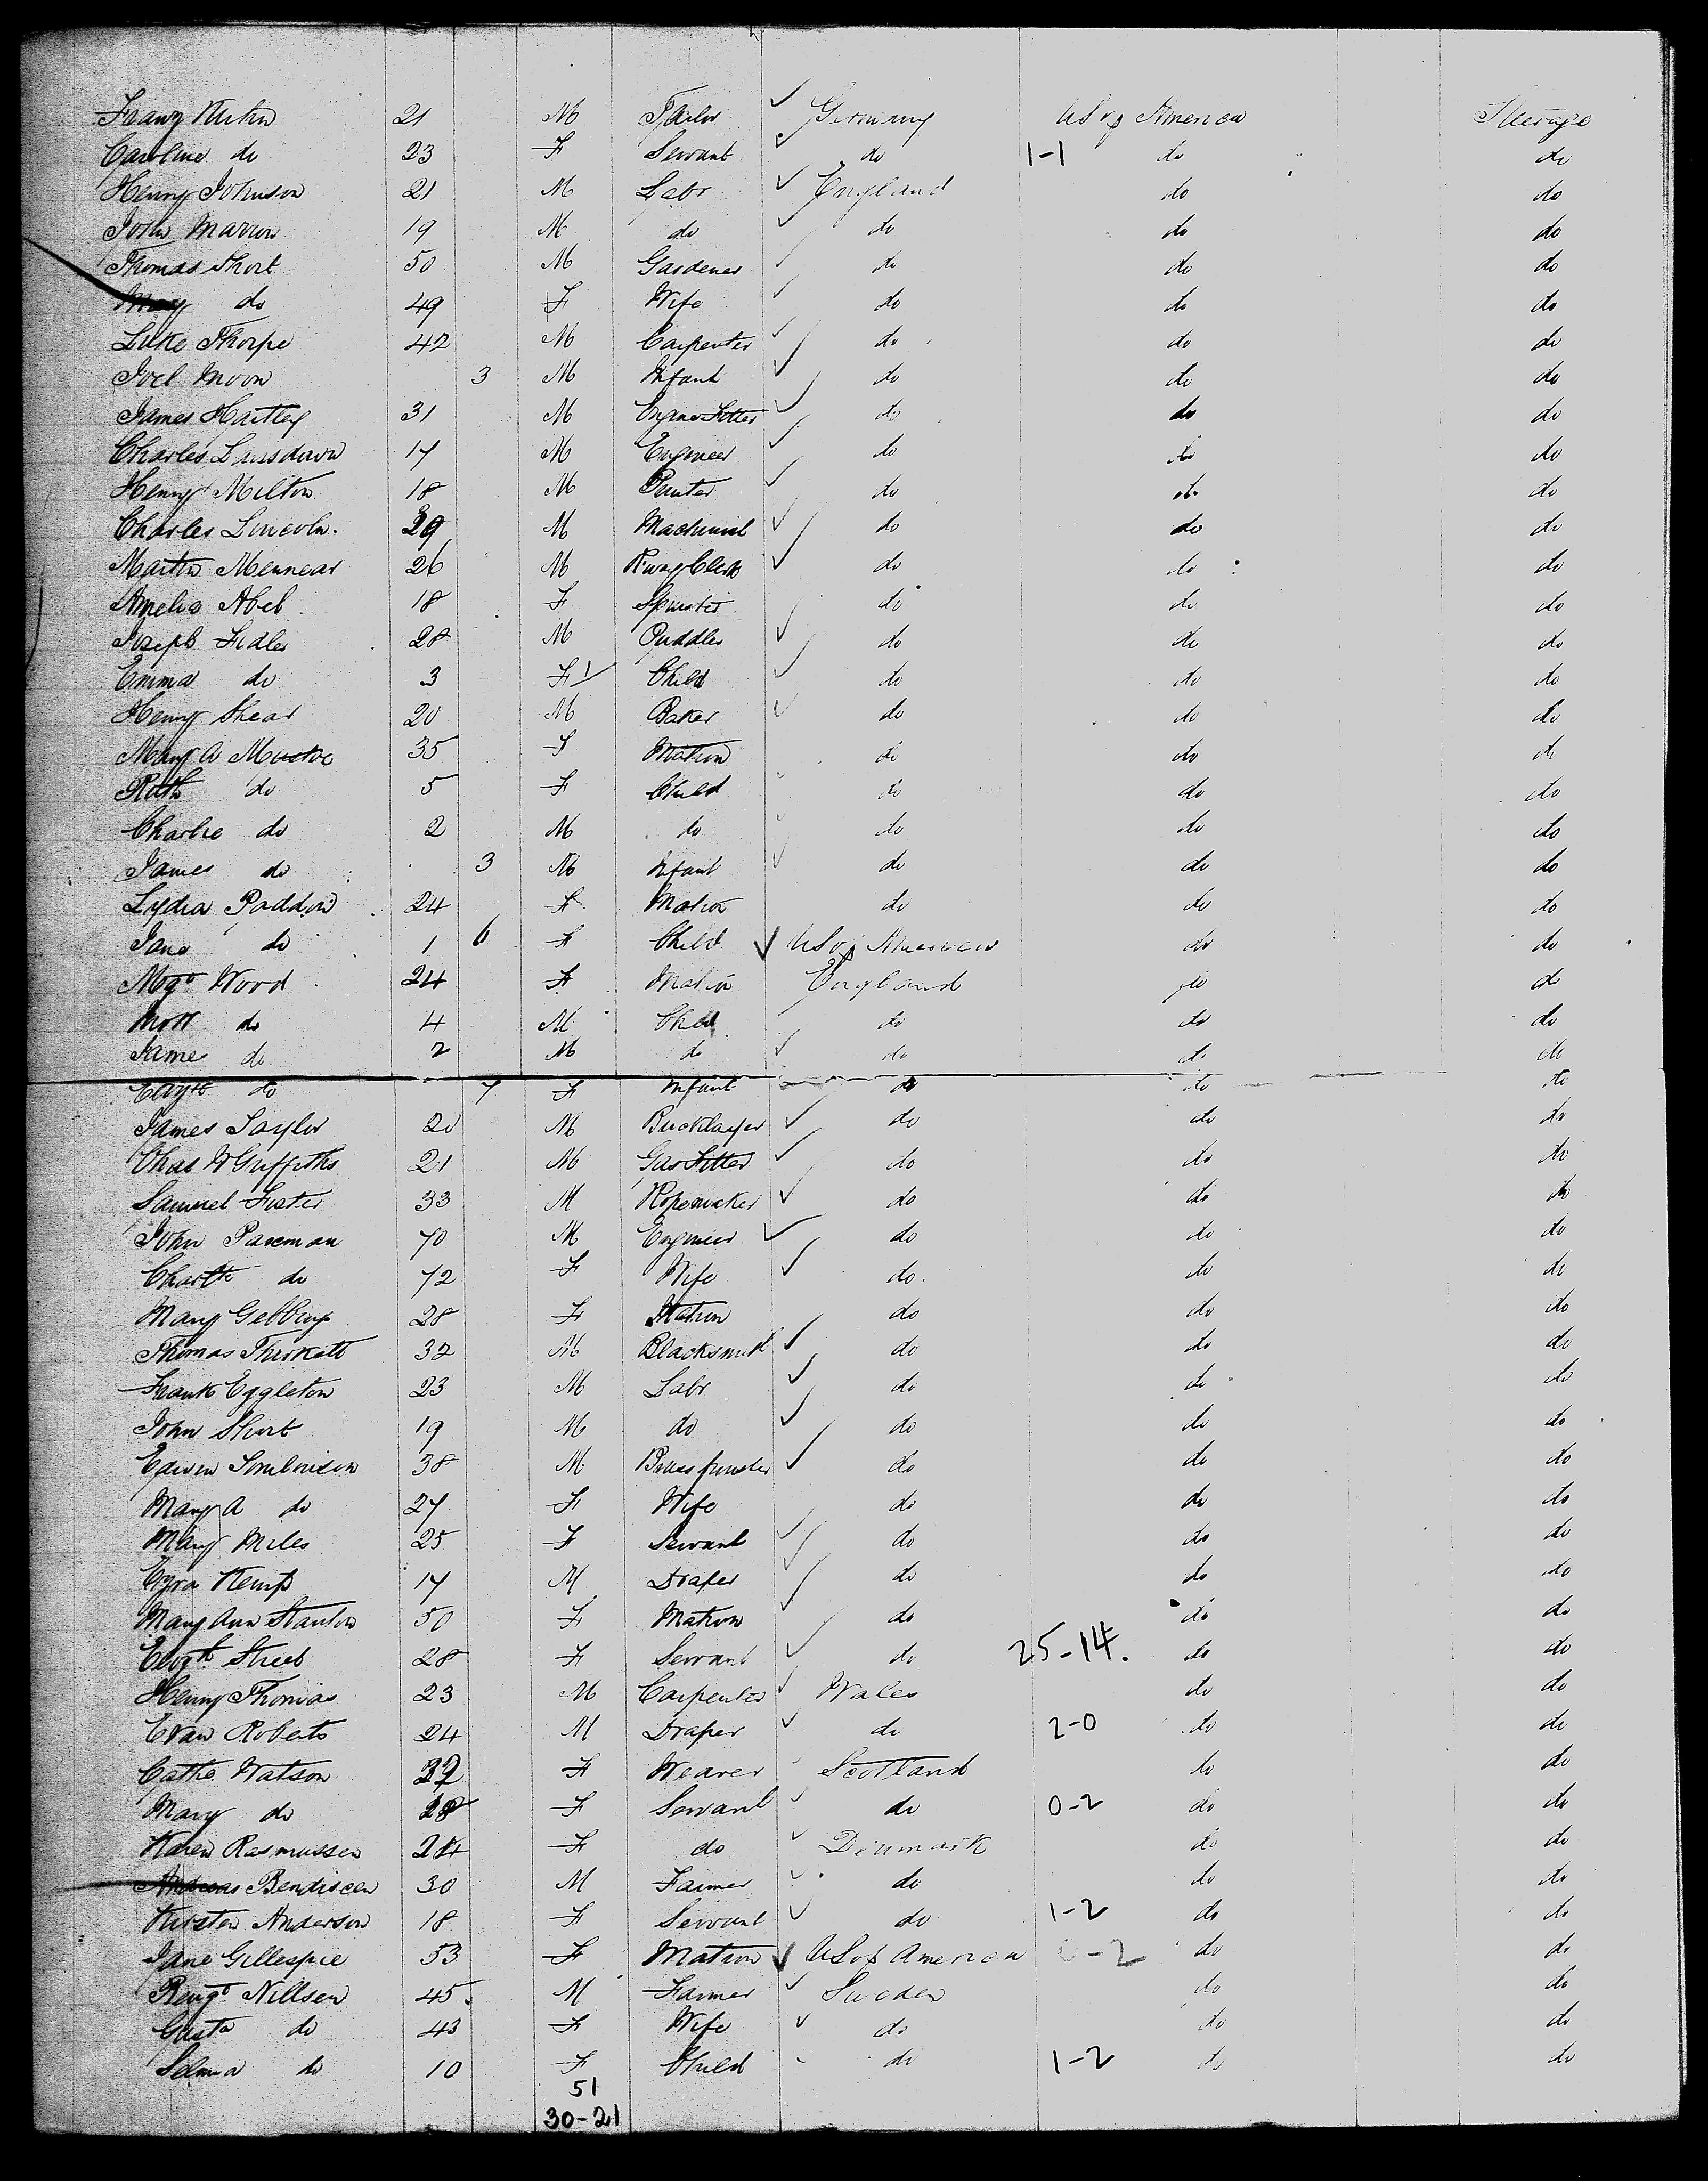 Franz Kuhn 21 M Tailor ✓ Germany US of America Steerage
Caroline do 23 F Servant ✓ do 1-1 do do
Henry Johnson 21 M Labr ✓ England do do
John Marron 19 M do ✓ do do do
Thomas Short 50 M Gardener ✓ do do do
Mary do 49 F Wife ✓ do do do
Luke Thorpe 42 M Carpenter ✓ do do do
Joel Moon 3 M Infant ✓ do do do
James Hartley 31 M Engine Fitter ✓ do do do
Charles Lansdown 17 M Engineer ✓ do do do
Henry Milton 18 M Painter ✓ do do do
Charles Lincoln 29 M Machinist ✓ do do do
Martin Mennear 26 M Rway Clerk ✓ do do do
Amelia Abel 18 F Spinster do do do
Joseph Fidler 28 M Puddler ✓ do do do
Emma do 3 F 1/ Child ✓ do do do
Henry Shear 20 M Baker ✓ do do do
Mary A Mustoe 35 F Matron do do do
Ruth do 5 F Child do do do
Charlie do 2 M do do do do
James do 3 M Infant ✓ do do do
Lydia Paddon 24 F Matron do do do
Jane do 1 6 F Child ✓ US of America do do
Mgt Wood 24 F Matron England do do
do 4 M Child do do do
James do 2 M do ✓ do do do
Elizth do 7 F Infant do do do
James Taylor 20 M Bricklayer ✓ do do do
Chas W Griffiths 21 M Gas Fitter ✓ do do do
Samuel Foster 33 M Ropemaker ✓ do do do
John Paseman 70 M Engineer ✓ do do do
Charltte do 72 F Wife ✓ do do do
Mary 28 F Matron do do do
Thomas Thirkett 32 M Blacksmith ✓ do do do
Frank Eggleton 23 M Labr ✓ do do do
John Short 19 M do ✓ do do do
Edwin Tomlinson 38 M Brass finisher ✓ do do do
Mary A do 27 F Wife do do do
Mary Miles 25 F Servant ✓ do do do
Ezra Kemp 17 M Draper ✓ do do do
Mary Ann Stanton 50 F Matron do do do
Elizth Street 28 F Servant ✓ do 25-14. do do
Henry Thomas 23 M Carpenter ✓ Wales do do
Evan Roberts 24 M Draper ✓ do 2-0 do do
Cathe Watson 32 F Weaver Scotland do do
Mary do 28 F Servant ✓ do 0-2 do do
Karen Rasmussen 24 F do ✓ Denmark do do
Andreas Bendiscen 30 M Farmer ✓ do do do
Kirsten Anderson 18 F Servant ✓ do 1-2 do do
Jane Gillespie 53 F Matron ✓ US of America 0-2 do do
Bengt Nillsen 45 M Farmer ✓ Sweden do do
Gusta do 43 F Wife ✓ do do do
Selma do 10 F Child do 1-2 do do
51
30-21